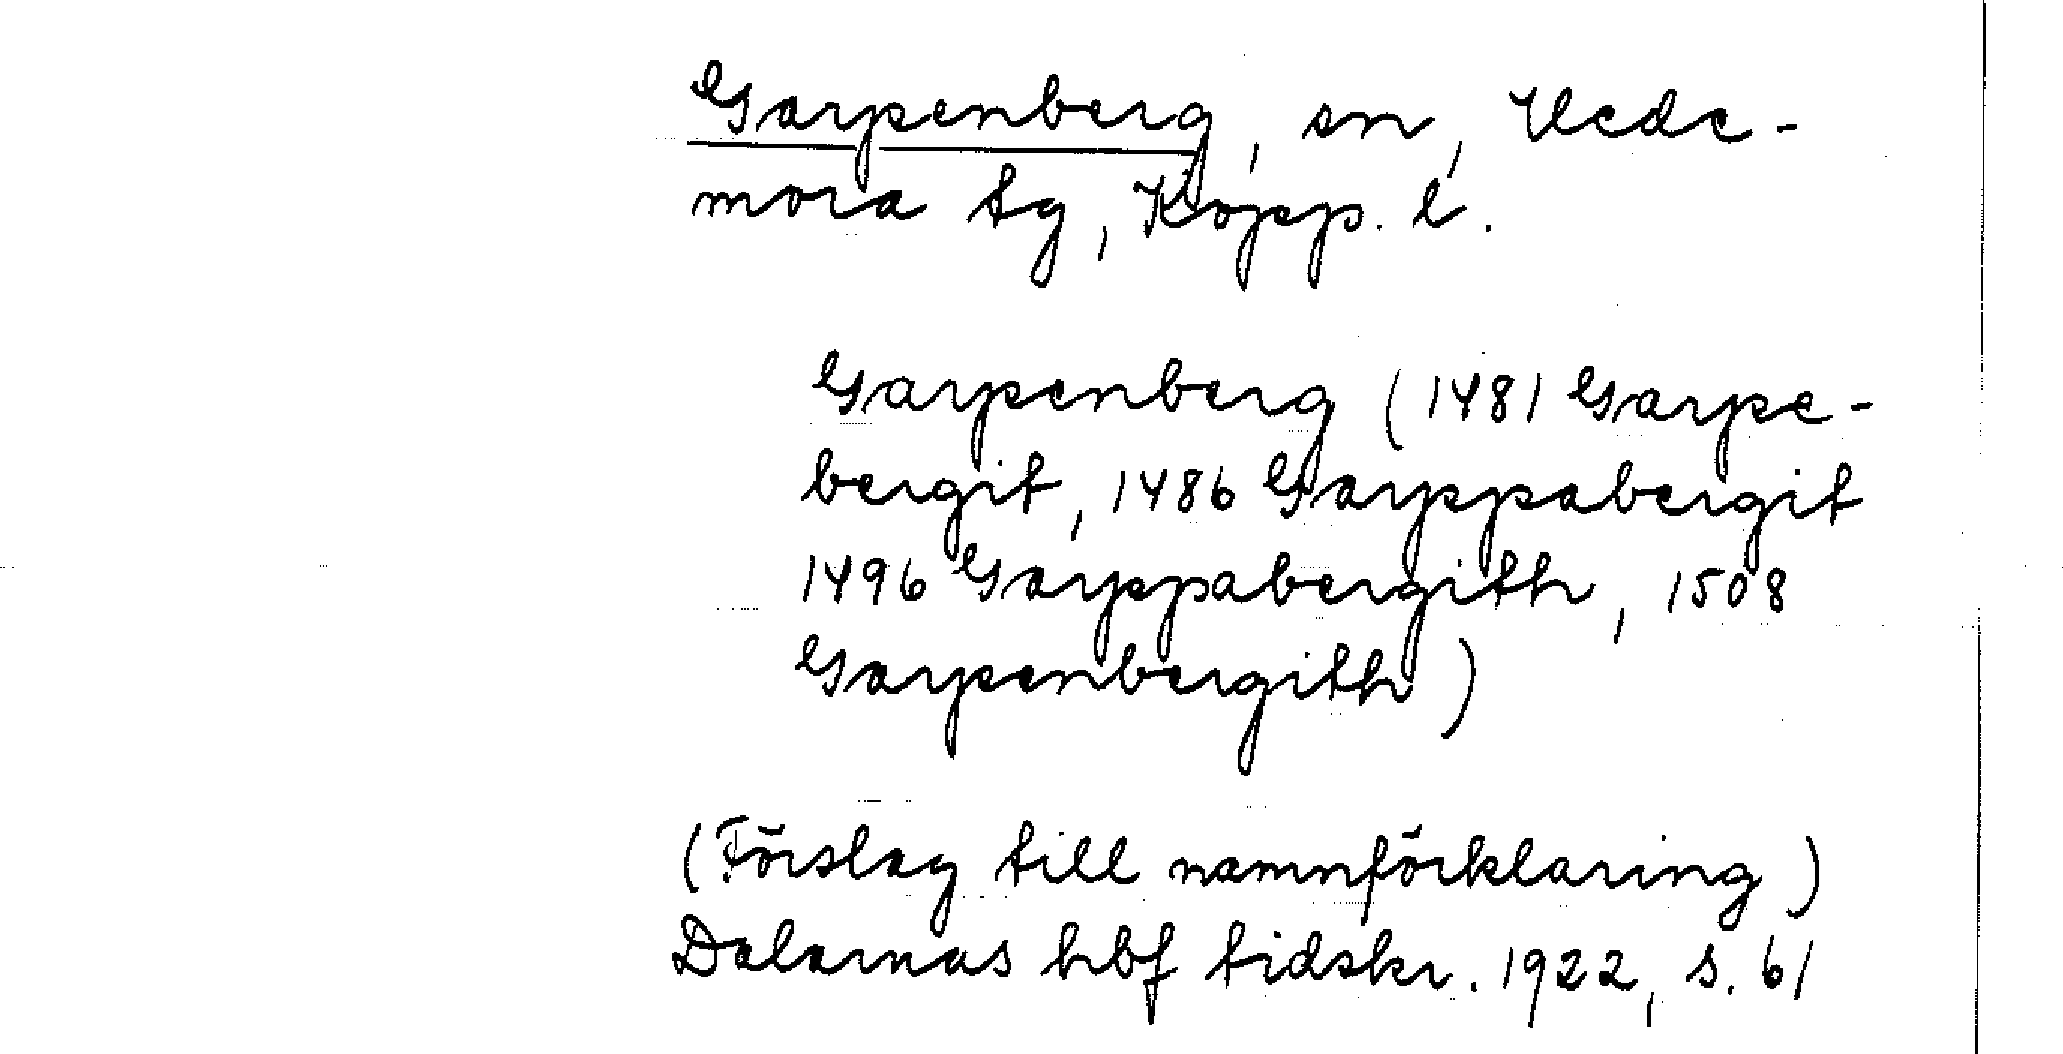 Garpenberg, sn, Hede-
mora tg, Kopp. l.
Garpenberg (1481 Garpe-
bergit, 1486 Garppabergit
1496 Garppabergith, 1508
Garpenbergith)
(Förslag till namnförklaring)
Dalarnas hbf tidskr. 1922, s. 61